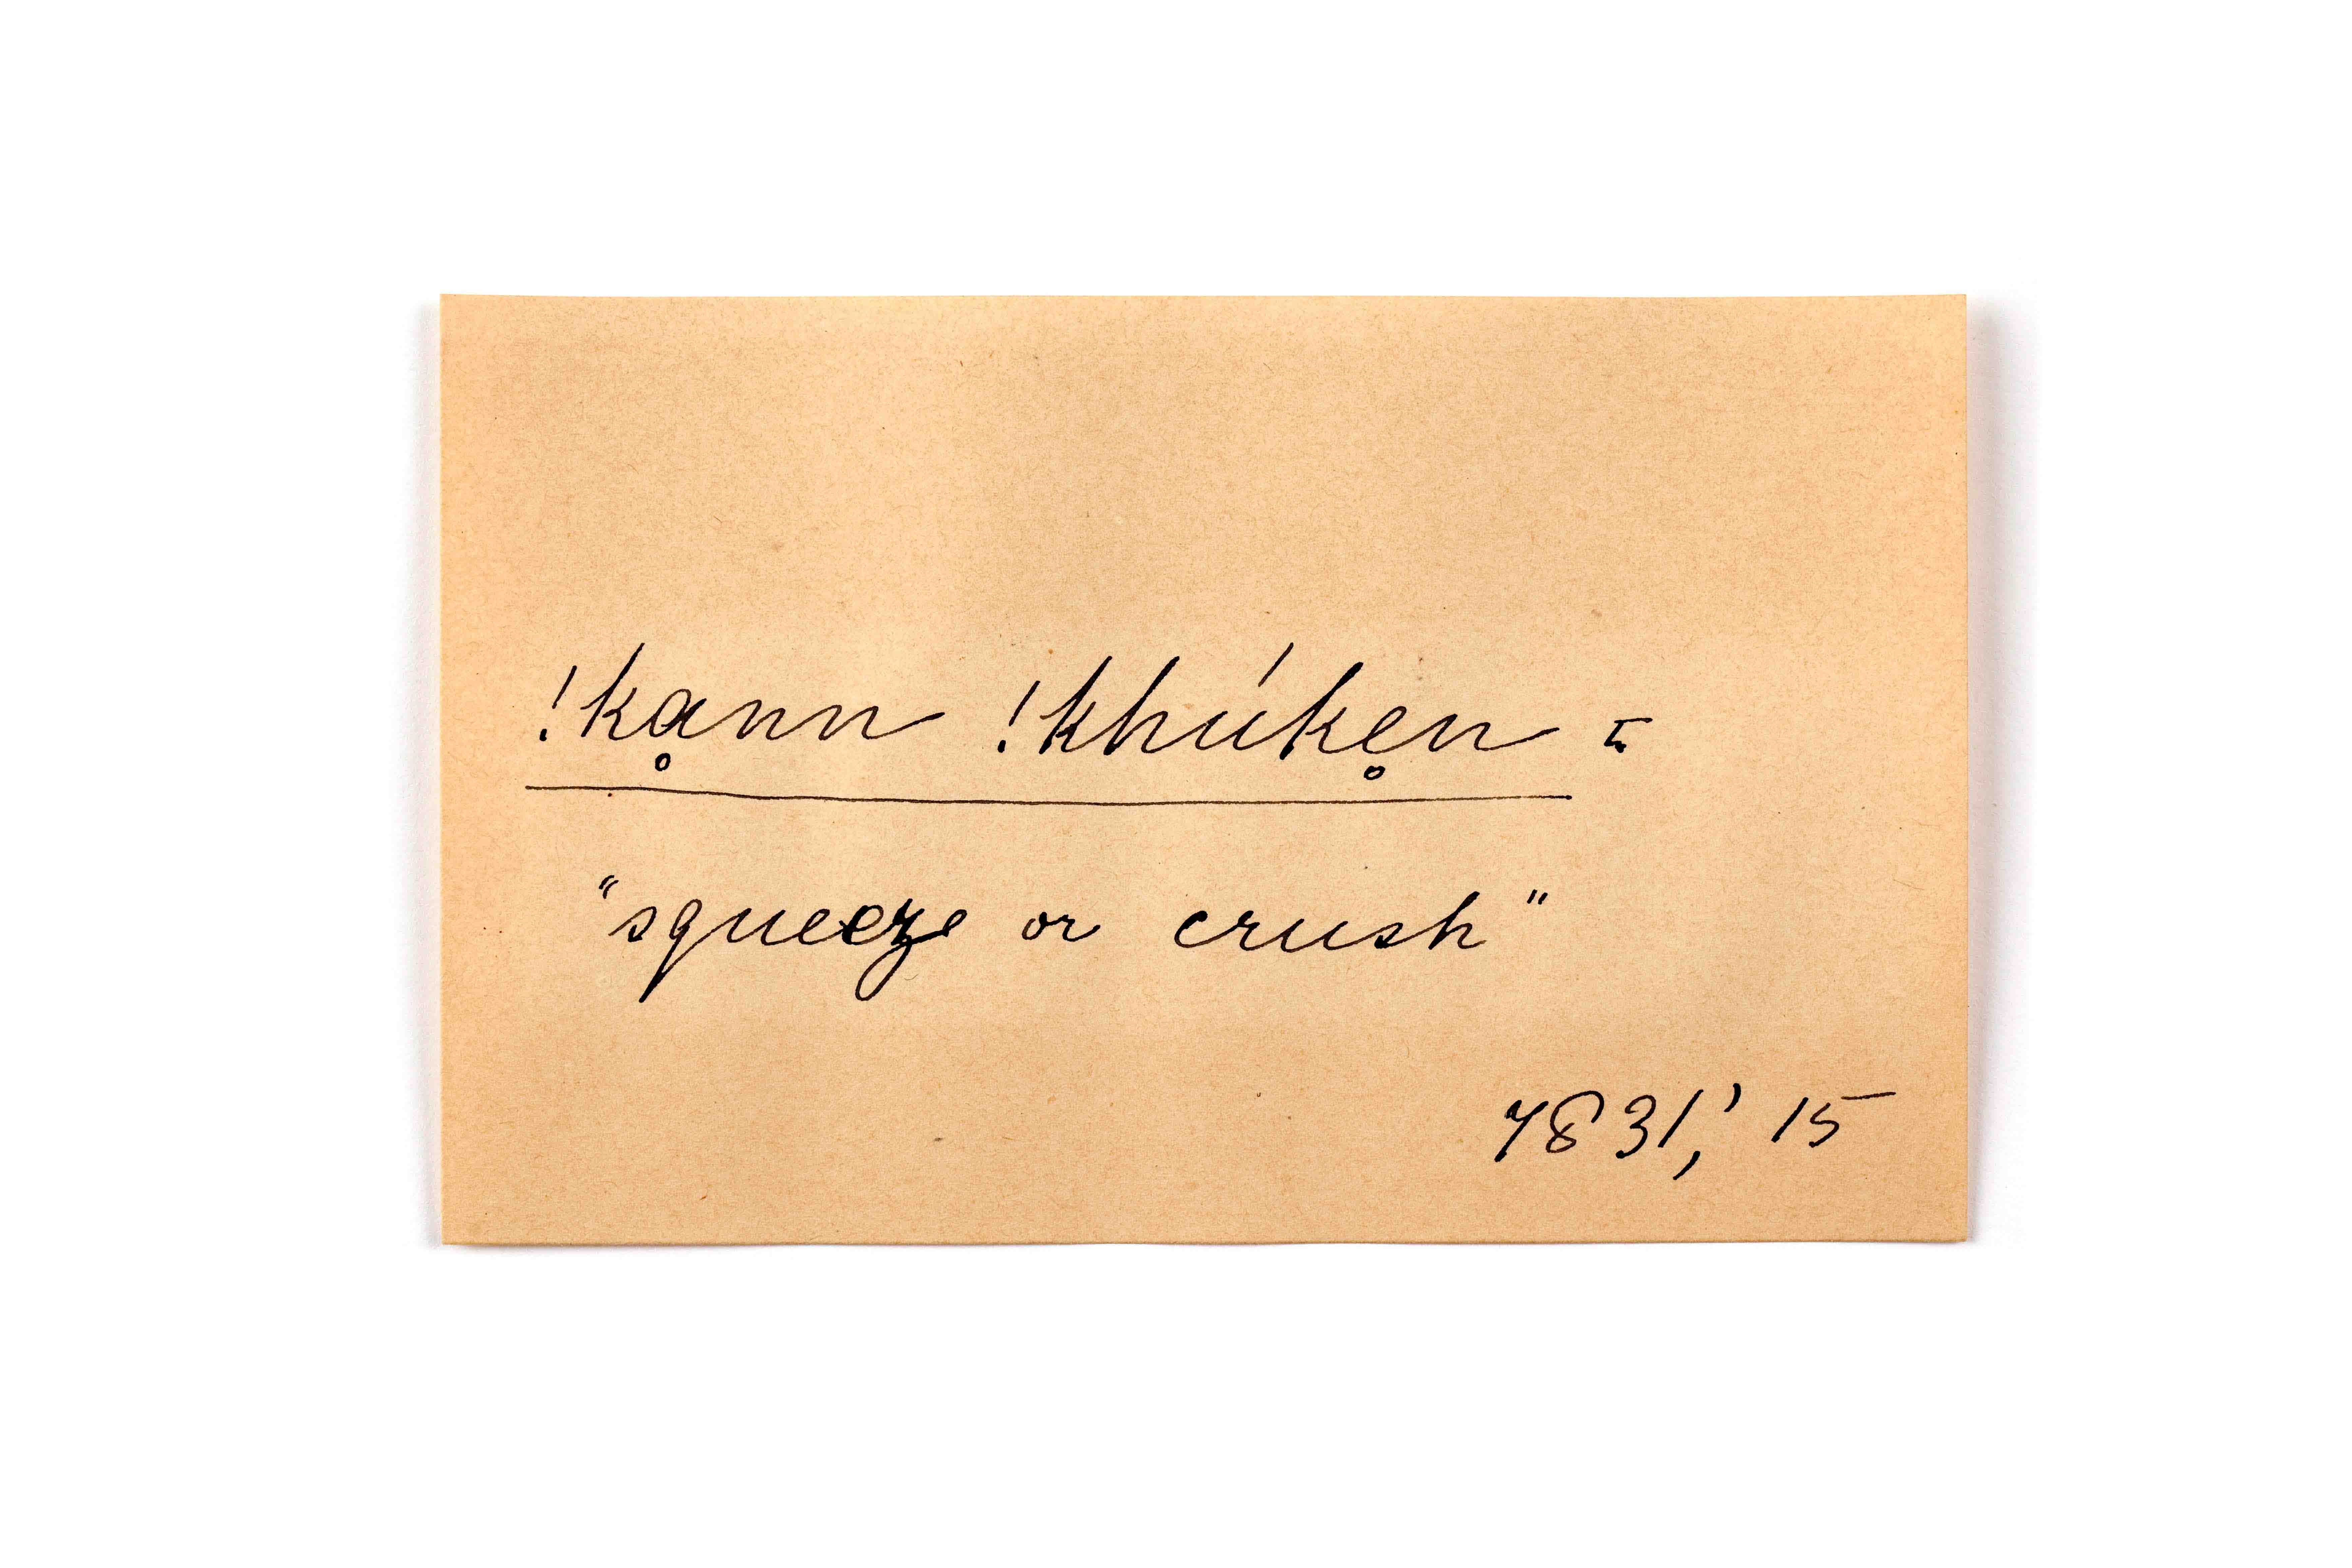 !kḁnn !khúke̥n =
"squeeze or crush"
7831,' 15